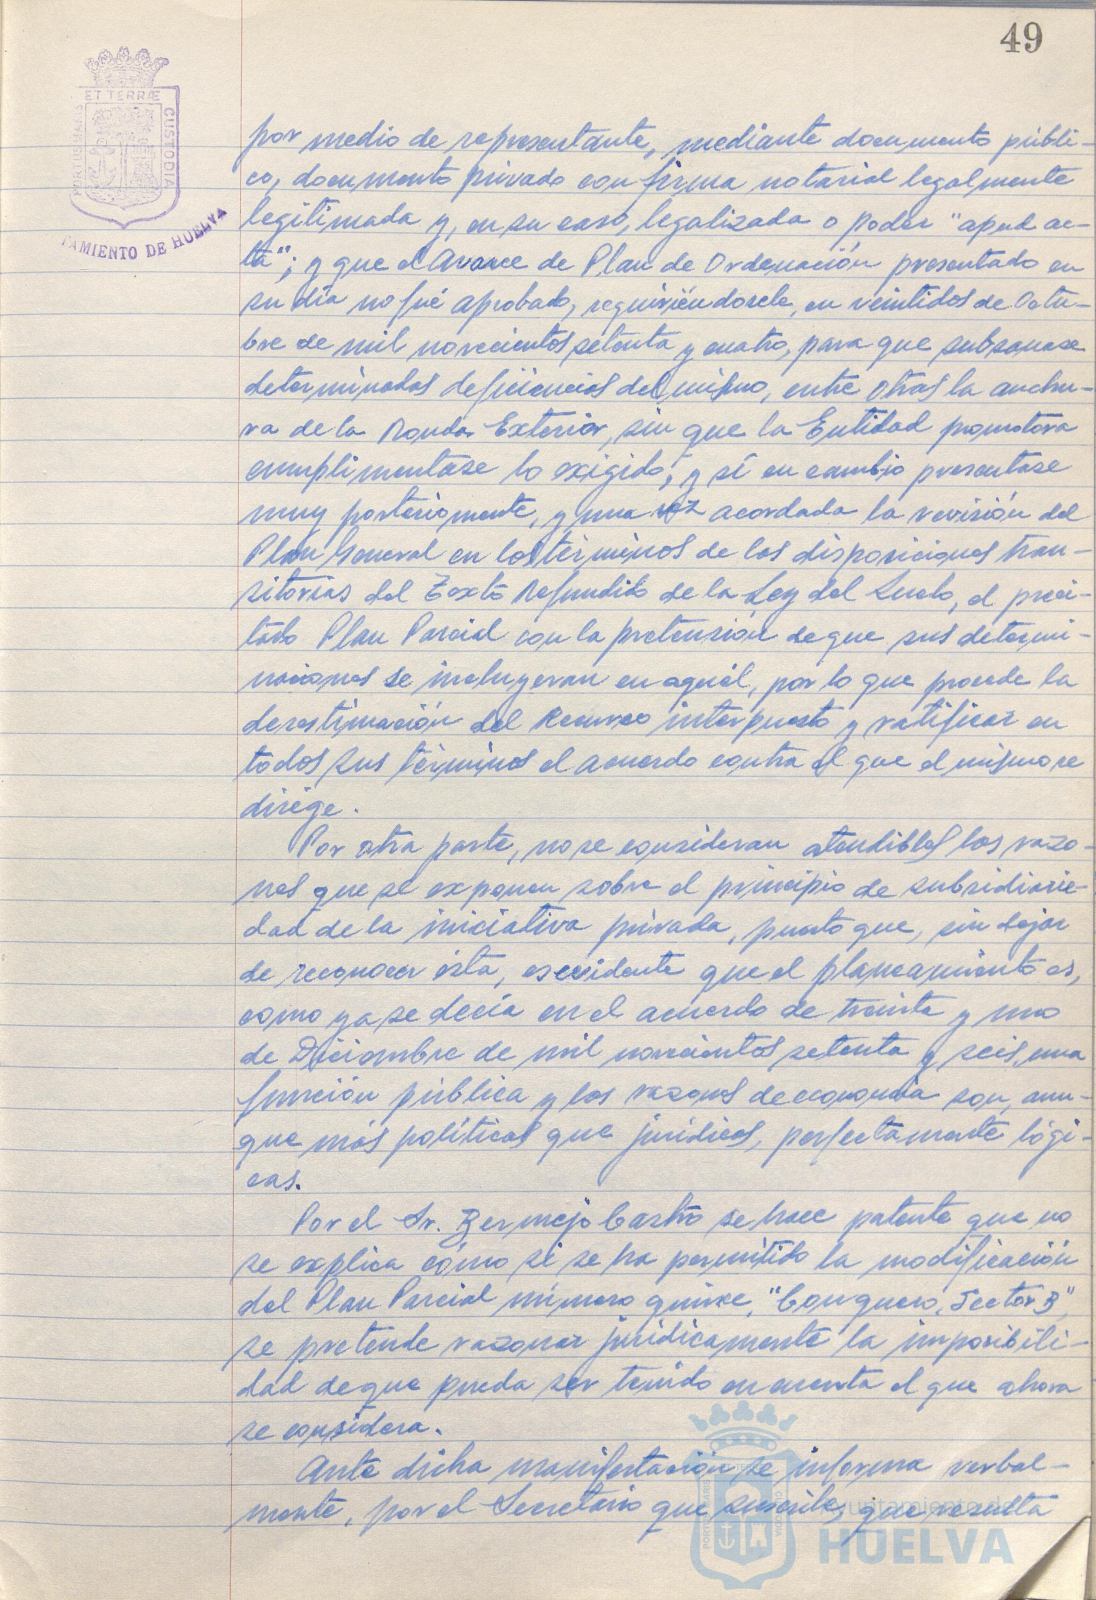 49
ET TERRÆ
CUSTODIA
PORTUS MARIS
TAMIENTO DE HUELVA
por medio de representante, mediante documento públi-
co, documento privado con firma notarial legalmente
legitimada y, en su caso, legalizada o poder "apud ac-
ta"; y que el Avance de Plan de Ordenación presentado en
su día no fué aprobado, requiriéndosele, en veintidos de Octu-
bre de mil novecientos setenta y cuatro, para que subsanase
determinadas deficiencias del mismo, entre otras la anchu-
ra de la Ronda Exterior, sin que la Entidad promotora
cumplimentase lo exigido; y sí en cambio presentase
muy posteriormente, y una vez acordada la revisión del
Plan General en los términos de las disposiciones tran-
sitorias del Texto Refundido de la Ley del Suelo, el preci-
tado Plan Parcial con la pretensión de que sus determi-
naciones se incluyeran en aquél, por lo que procede la
desestimación del Recurso interpuesto y ratificar en
todos sus términos el acuerdo contra el que el mismo se
dirige.
Por otra parte, no se consideran atendibles las razo-
nes que se exponen sobre el principio de subsidiarie-
dad de la iniciativa privada, puesto que, sin dejar
de reconocer ésta, es evidente que el planeamiento es,
como ya se decía en el acuerdo de treinta y uno
de Diciembre de mil novecientos setenta y seis, una
función pública y las razones de economía son, aun-
que más políticas que jurídicas, perfectamente lógi-
cas.
Por el Sr. Bermejo Castro se hace patente que no
se explica cómo si se ha permitido la modificación
del Plan Parcial número quince, "Conquero, Sector B",
se pretende razonar jurídicamente la imposibili-
dad de que pueda ser tenido en cuenta el que ahora
se considera.
Ante dicha manifestación se informa verbal-
mente, por el Secretario que suscribe, que resulta
Ayuntamiento de
HUELVA